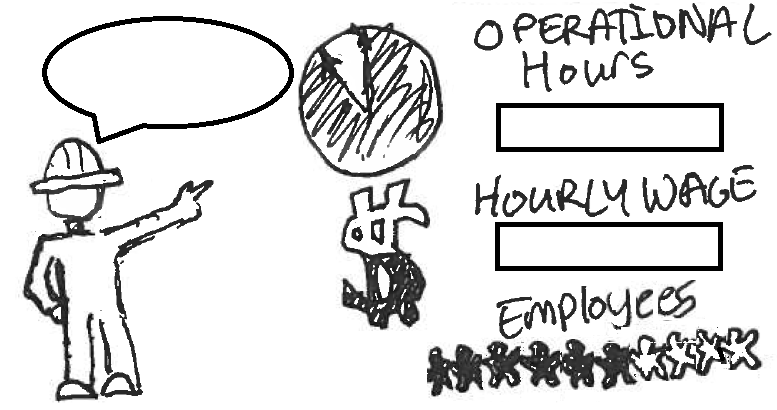 OPERATIONAL
Hours
HOURLY WAGE
Employees